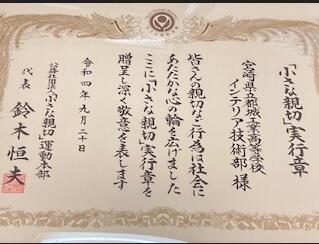 「小さな親切」実行章
宮崎県立都城工業高等学校
インテリア技術部 様
皆さんの親切なご行為は社会に
あたたかな心の輪を広げました
ここに「小さな親切」実行章を
贈呈し深く敬意を表します
令和四年九月二十日
公益社団法人「小さな親切」運動本部
代表 鈴木恒夫